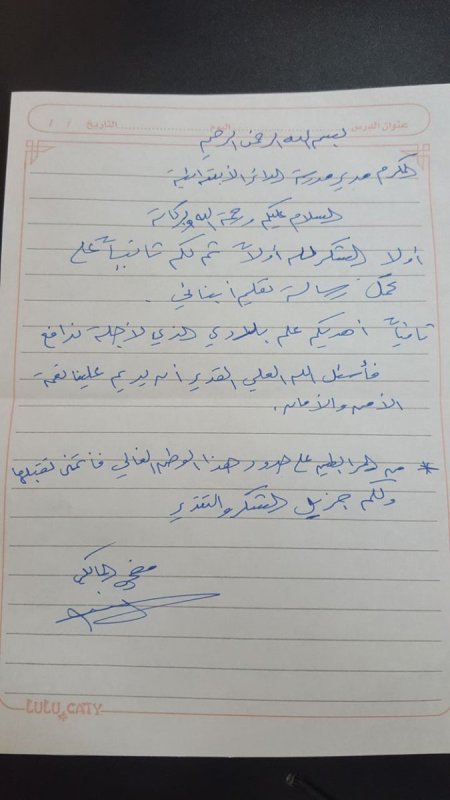 عنوان الدرس ........ اليوم ........ التاريخ / /
بسم الله الرحمن الرحيم
المكرم مدير مدرسة الدائر الأبتدائية
السلام عليكم ورحمة الله وبركاتة
أولا الشكر لله أولاً ثم لكم ثانياً على
تحمل رسالة تعليم أبنائي .
ثانياً أهديكم علم بلادي الذي لأجلة ندافع
فأسئل الله العلي القدير أن يديم علينا نعمة
الأمن والأمان .
* من المرابطين على حدود هذا الوطن الغالي فأتمنى تقبلها
ولكم جزيل الشكر والتقدير
المالكي
LULU CATY